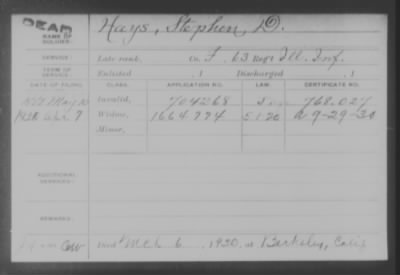 DEAD
NAME OF SOLDIER:
Hays, Stephen, D.
SERVICE:
Late rank, Co. F, 63 Reg't Ill. Inf.
TERM OF SERVICE:
Enlisted , 1 Discharged , 1
DATE OF FILING. CLASS. APPLICATION NO. LAW. CERTIFICATE NO.
May 10 Invalid, 704268 768.027
7 Widow, 1664774 5-1-20 a 9-29-30
Minor,
ADDITIONAL SERVICES:
REMARKS:
Died Mch 6, 1930, at Berkeley, Calif